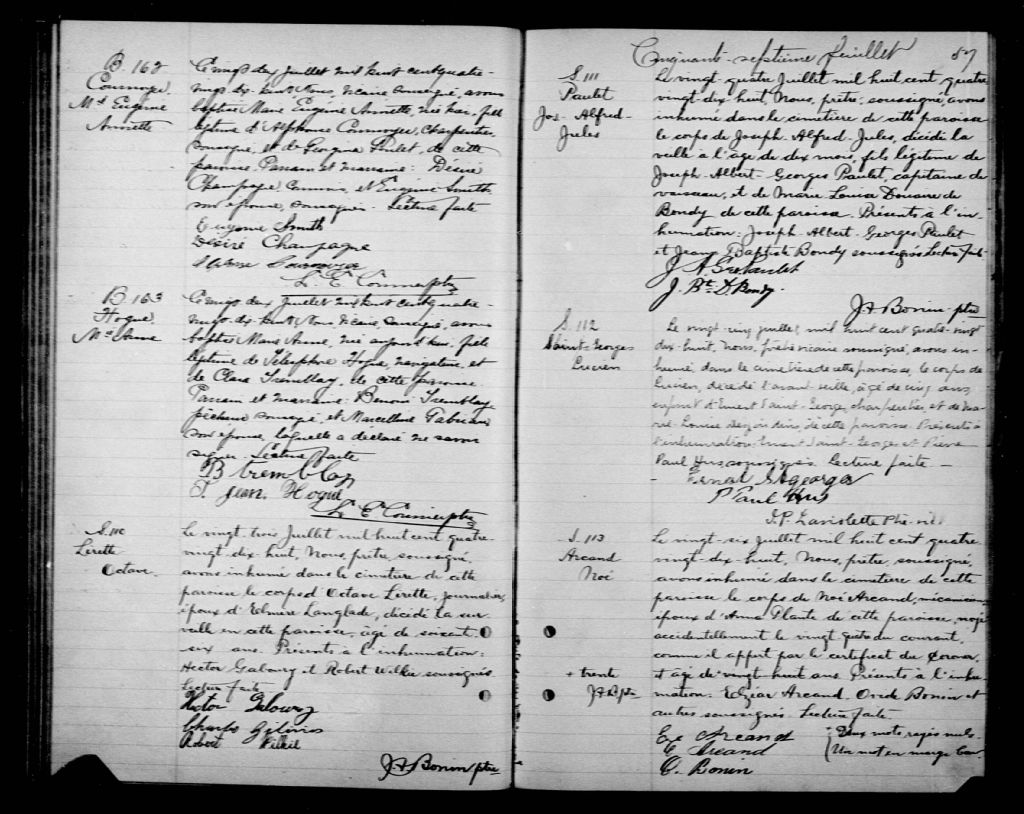 B. 162
Cournoyer
Me Eugénie
Annette
Le vingt deux Juillet mil huit cent quatre-
vingt-dix-huit Nous, vicaire soussigné, avons
baptisé Marie Eugénie Annette, née hier, fille
légitime d'Alphonse Cournoyer, charpentier,
soussigné, et de Georgina Paulet, de cette
paroisse. Parrain et marraine: Désiré
Champagne, commis, et Eugénie Smith
son épouse, soussignés. Lecture faite
Eugénie Smith
Désiré Champagne
Cournoyer
L. E. Cournoyer ptre
B 163
Hogue
Me Anne
Le vingt deux Juillet mil huit cent quatre-
vingt-dix-huit Nous, vicaire soussigné, avons
baptisé Marie Anne, née aujourd'hui, fille
légitime de Télesphore Hogue, navigateur, et
de Clara Tremblay, de cette paroisse.
Parrain et marraine: Benoni Tremblay,
pêcheur soussigné, et Marcelline
son épouse, laquelle a déclaré ne savoir
signer. Lecture faite
B tremblay
T. Jean Hogue
L. E. Cournoyer ptre
S. 110
Lirette
Octave
Le vingt trois Juillet mil huit cent quatre-
vingt-dix-huit, Nous, prêtre, soussigné,
avons inhumé dans le cimetière de cette
paroisse le corps d'Octave Lirette, journalier,
époux d'Elmire Langlade, décédé la sur-
veille en cette paroisse, agé de soixante
six ans. Présents à l'inhumation:
Hector Gaboury et Robert Wilkie soussignés
Lecture faite
Hector Gaboury
Charles
Robert Wilkie
J A Bonin ptre
Cinquante-septième feuillet 57
S. 111
Paulet
Jos-Alfred-
Jules
Le vingt-quatre Juillet mil huit cent quatre
vingt-dix-huit, Nous, prêtre, soussigné, avons
inhumé dans le cimetière de cette paroisse
le corps de Joseph-Alfred-Jules, décédé la
veille à l'age de deux mois, fils légitime de
Joseph-Albert-Georges Paulet, capitaine de
vaisseau, et de Marie Louisa Douaire de
Bondy de cette paroisse. Présents à l'in-
humation: Joseph-Albert-Georges Paulet
et Jean Baptiste Bondy soussignés Lecture faite
J. A. G
J. Bte D. Bondy.
J A Bonin ptre
S. 112
Saint-Georges
Lucien
Le vingt-cinq juillet, mil huit cent quatre-vingt
dix-huit, nous, prêtre vicaire soussigné, avons in-
humé, dans le cimetière de cette paroisse, le corps de
Lucien, décédé l'avant veille, âgé de cinq ans,
enfant d'Ernest Saint-Georges, charpentier, et de Ma-
rie-Louise, de cette paroisse. Présents à
l'inhumation Ernest Saint-Georges et Pierre
Paul Hus soussignés Lecture faite —
Ernest St georges
P Paul Hus
J. P. Laviolette Ptre-vic
S. 113
Arcand
Noé
Le vingt-six juillet mil huit cent quatre
vingt-dix-huit, Nous, prêtre, soussigné,
avons inhumé dans le cimetière de cette
paroisse le corps de Noé Arcand, mécanicien,
époux d'Anna Plante de cette paroisse, noyé
accidentellement le vingt quatre du courant,
comme il appert par le certificat du Coroner,
+ trente
J A B ptre
et agé de vingt huit ans. Présents à l'inhu-
mation: Edgar Arcand, Ovide Bonin et
autres soussignés. Lecture faite
E. Arcand
E. Arcand
O. Bonin
Deux mots rayés nuls
Un mot en marge bon